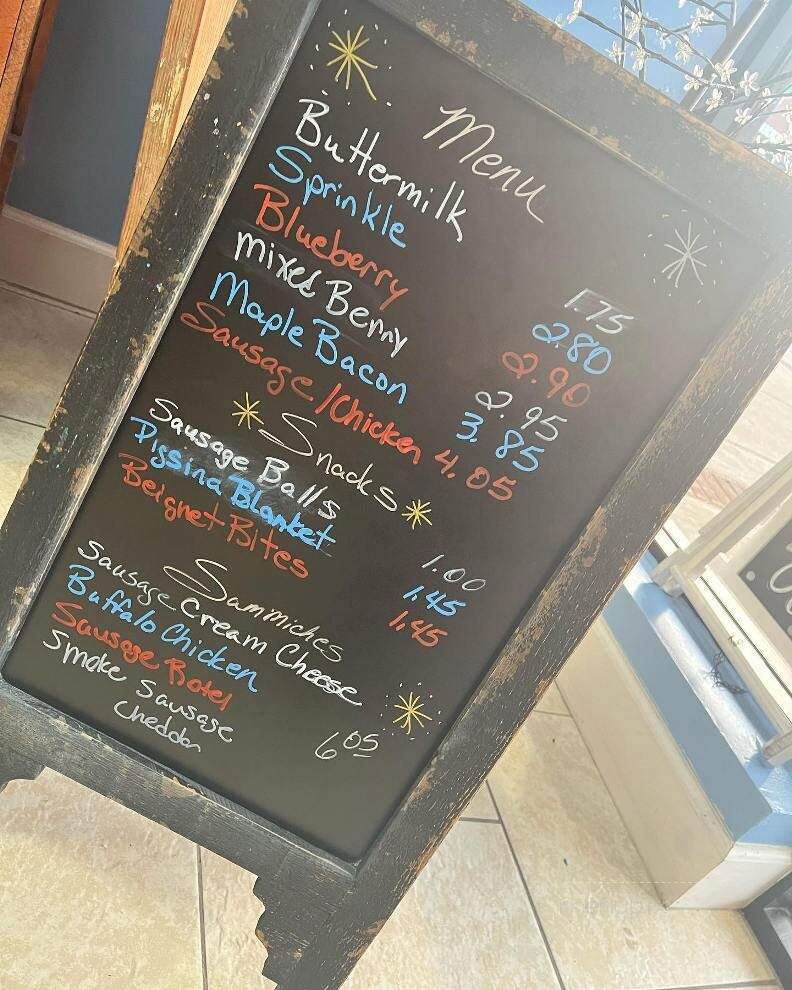 Menu
Buttermilk 1.75
Sprinkle 2.80
Blueberry 2.90
Mixed Berry 2.95
Maple Bacon 3.85
Sausage/Chicken 4.05
Snacks
Sausage Balls 1.00
Pigs ina Blanket 1.45
Beignet Bites 1.45
Sammiches
Sausage Cream Cheese
Buffalo Chicken
Sausage Rotel
Smoke Sausage
Cheddar 6.05